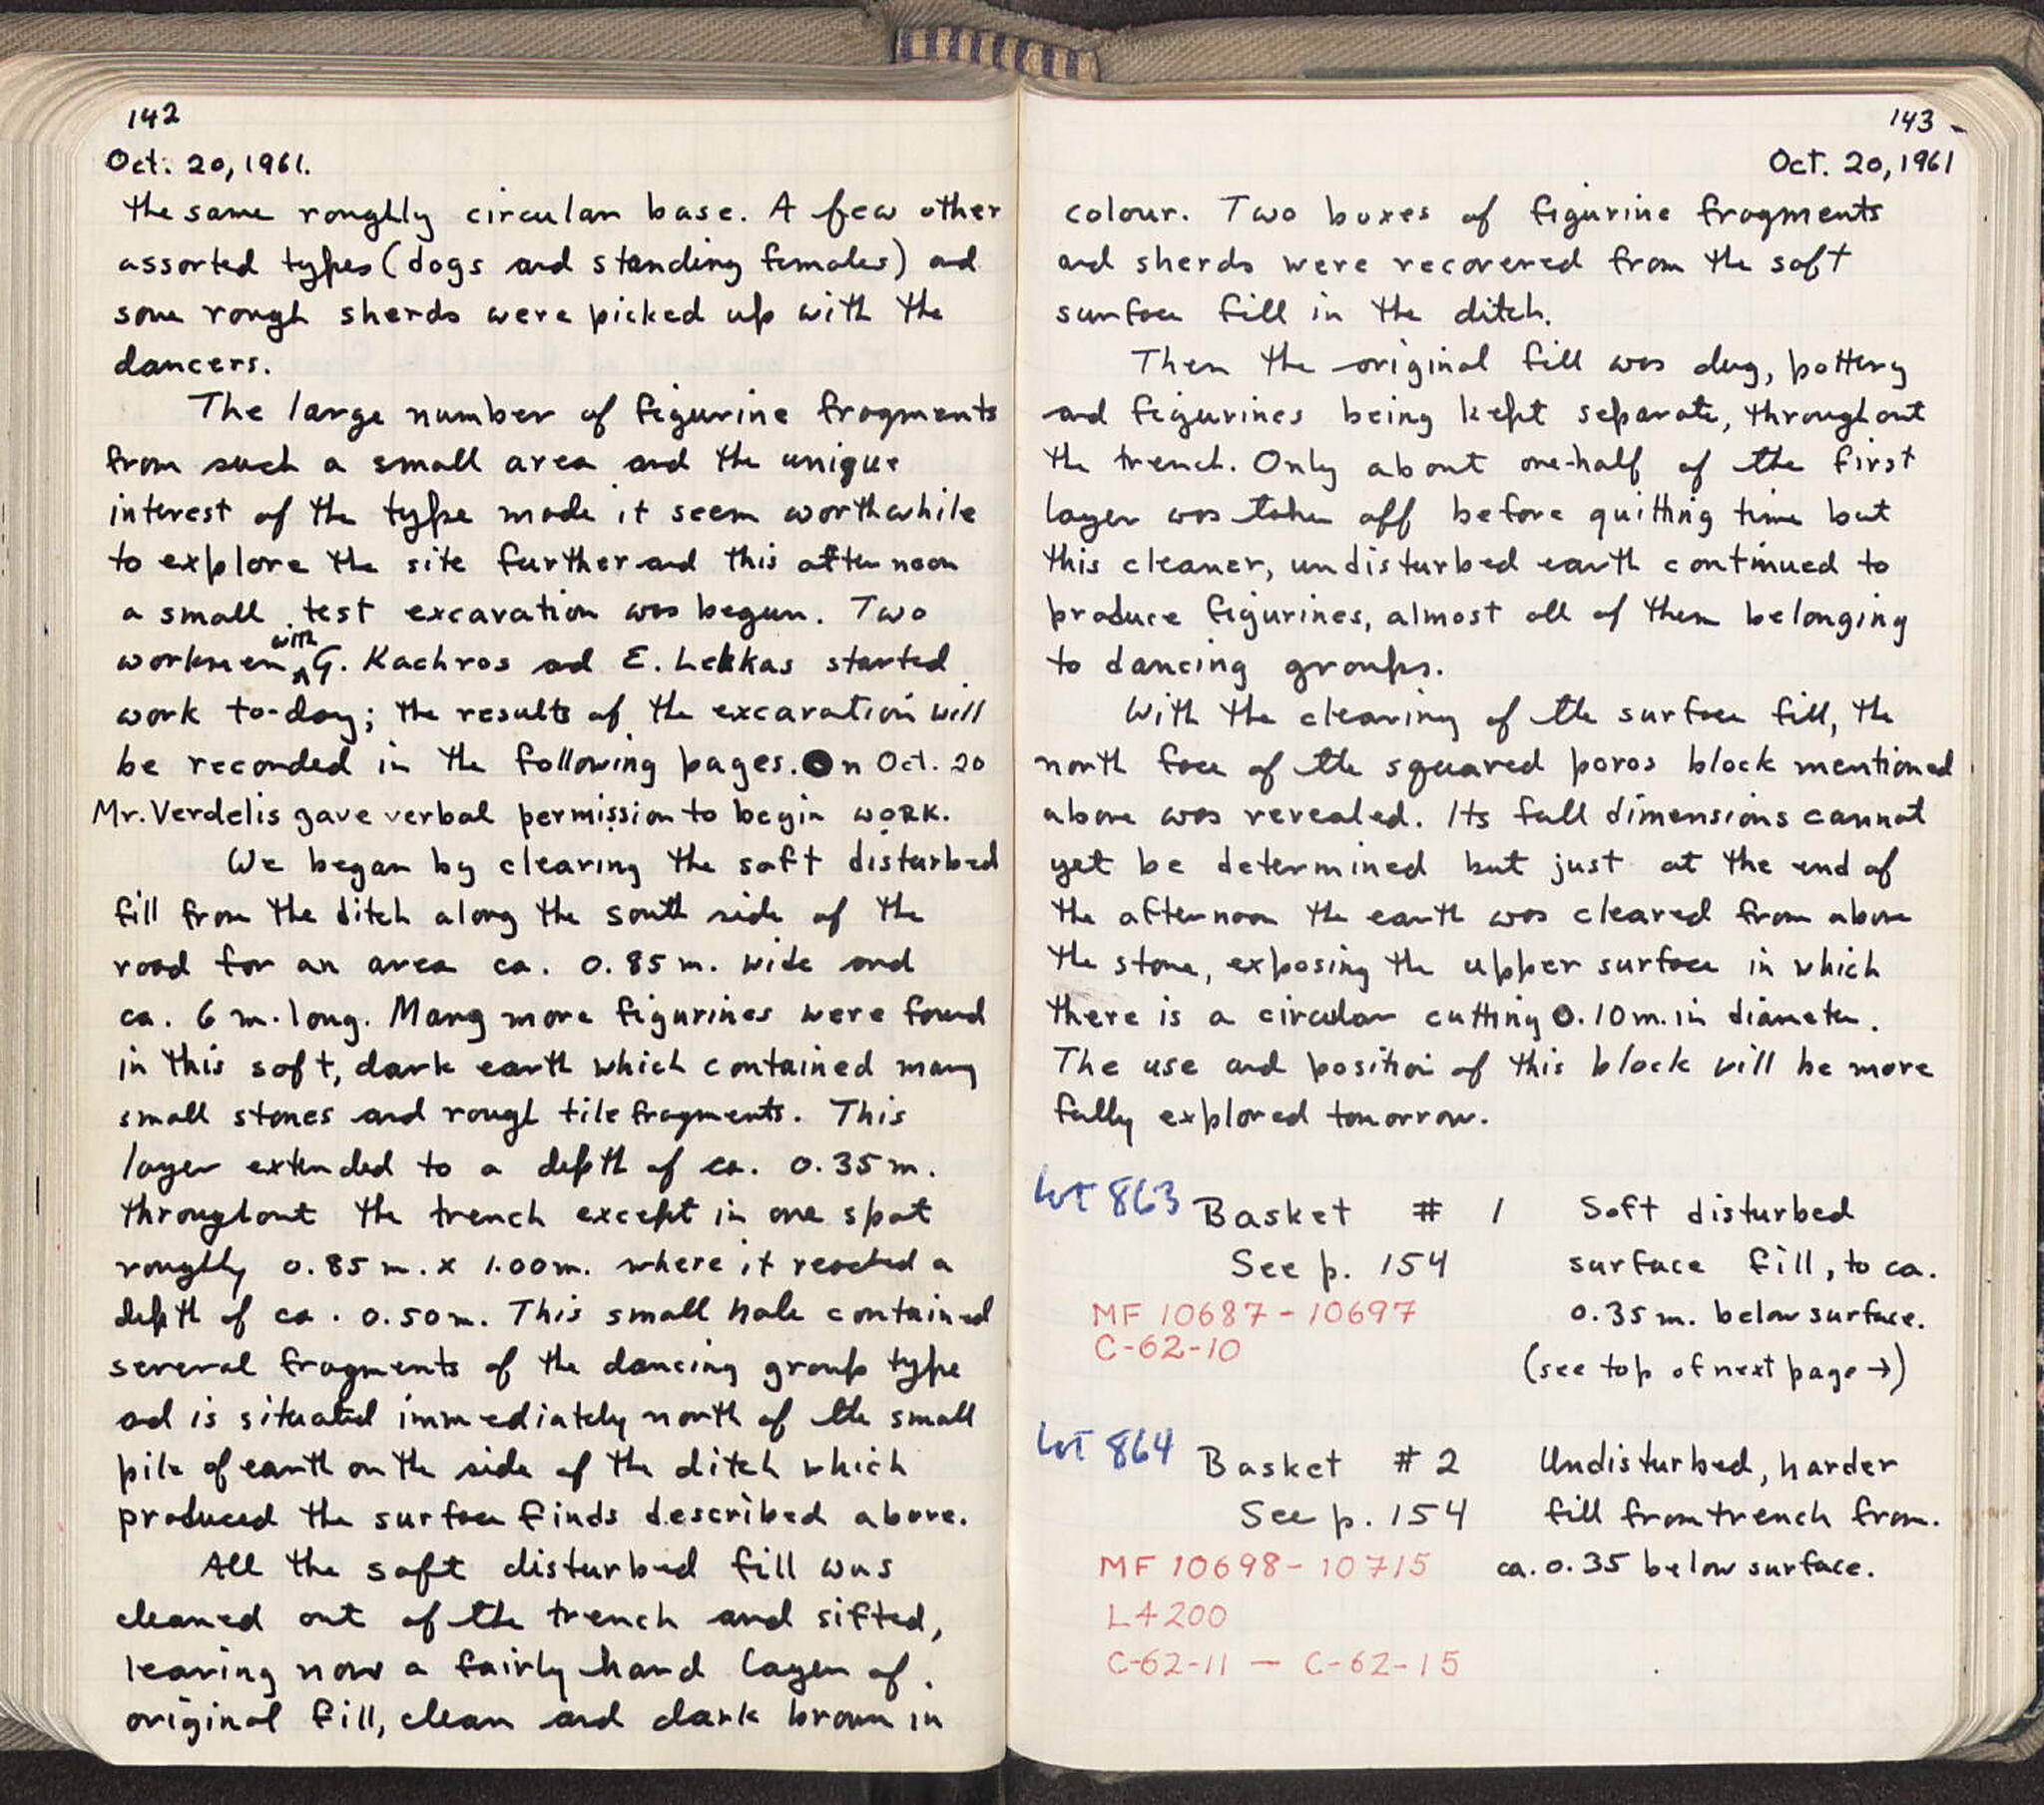 142
Oct. 20, 1961.
the same roughly circular base. A few other
assorted types (dogs and standing females) and
some rough sherds were picked up with the
dancers.
The large number of figurine fragments
from such a small area and the unique
interest of the type made it seem worthwhile
to explore the site further and this afternoon
a small test excavation was begun. Two
workmen with G. Kachros and E. Lekkas started
work to-day; the results of the excavation will
be recorded in the following pages. On Oct. 20
Mr. Verdelis gave verbal permission to begin work.
We began by clearing the soft disturbed
fill from the ditch along the south side of the
road for an area ca. 0.85 m. wide and
ca. 6 m. long. Many more figurines were found
in this soft, dark earth which contained many
small stones and rough tile fragments. This
layer extended to a depth of ca. 0.35 m.
throughout the trench except in one spot
roughly 0.85 m. x 1.00 m. where it reached a
depth of ca. 0.50 m. This small hole contained
several fragments of the dancing group type
and is situated immediately north of the small
pile of earth on the side of the ditch which
produced the surface finds described above.
All the soft disturbed fill was
cleaned out of the trench and sifted,
leaving now a fairly hard layer of
original fill, clean and dark brown in
143
Oct. 20, 1961
colour. Two boxes of figurine fragments
and sherds were recovered from the soft
surface fill in the ditch.
Then the original fill was dug, pottery
and figurines being kept separate, throughout
the trench. Only about one-half of the first
layer was taken off before quitting time but
this cleaner, undisturbed earth continued to
produce figurines, almost all of them belonging
to dancing groups.
With the clearing of the surface fill, the
north face of the squared poros block mentioned
above was revealed. Its full dimensions cannot
yet be determined but just at the end of
the afternoon the earth was cleared from above
the stone, exposing the upper surface in which
there is a circular cutting 0.10 m. in diameter.
The use and position of this block will be more
fully explored tomorrow.
Lot 863 Basket # 1 Soft disturbed
See p. 154 surface fill, to ca.
MF 10687 - 10697 0.35 m. below surface.
C-62-10
(see top of next page →)
Lot 864 Basket # 2 Undisturbed, harder
See p. 154 fill from trench from
MF 10698 - 10715 ca. 0.35 below surface.
L4200
C-62-11 — C-62-15